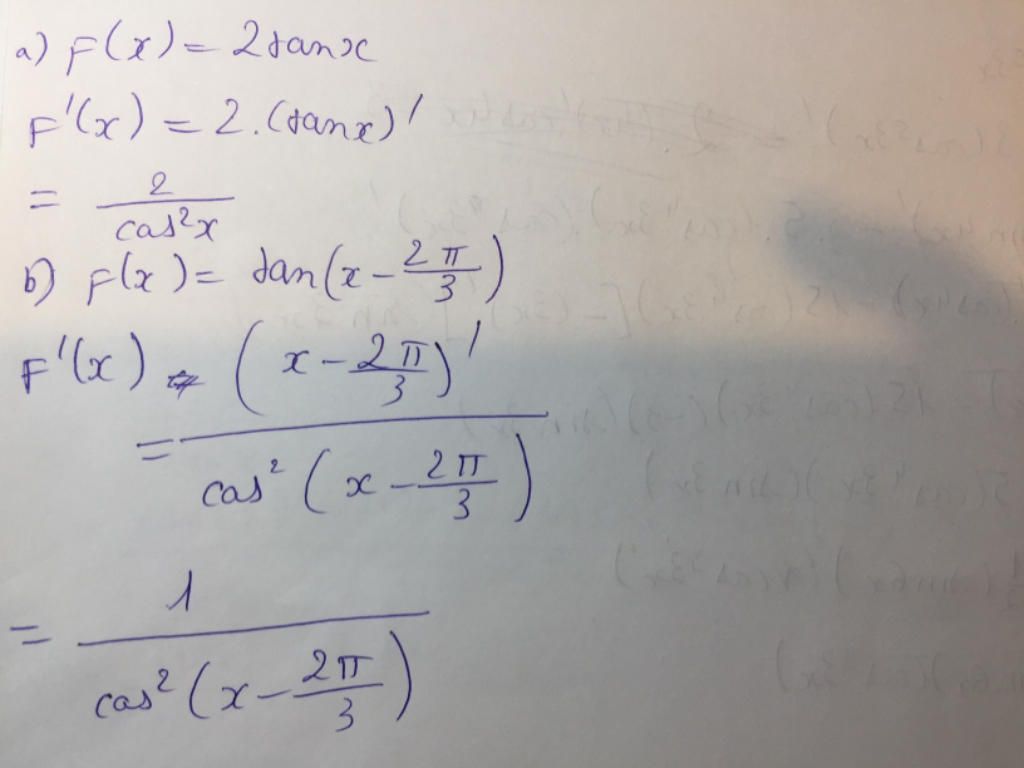 a) F(x) = 2tanx
F'(x) = 2.(tanx)'
= 2/cos²x
b) F(x) = tan(x - 2π/3)
F'(x) = (x - 2π/3)'/cos²(x - 2π/3)
= 1/cos²(x - 2π/3)